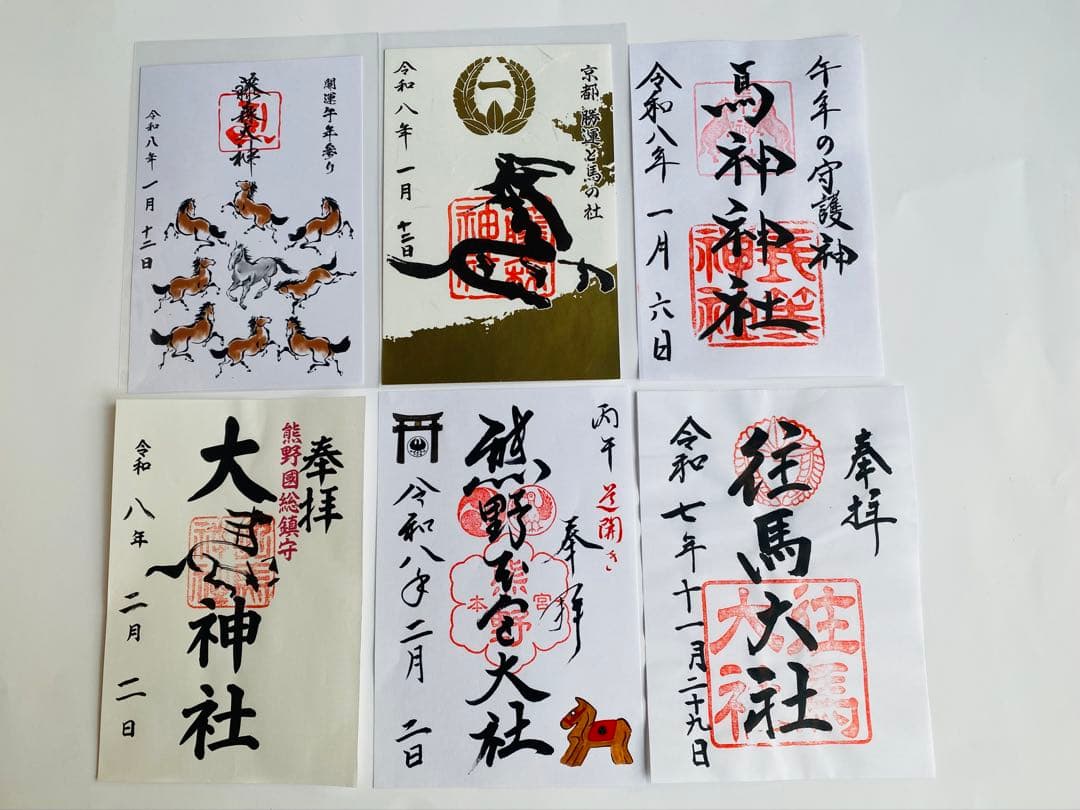 開運午年参り
藤森大神
令和八年一月十二日
京都 勝運と馬の社
一
藤森神社
令和八年一月十二日
午年の守護神
馬神神社
令和八年一月六日
奉拝
熊野國総鎮守
大馬神社
令和八年二月二日
丙午
道開き
奉拝
熊野本宮大社
熊野
本宮
令和八年二月二日
奉拝
往馬大社
往馬大社
令和七年十一月二十九日